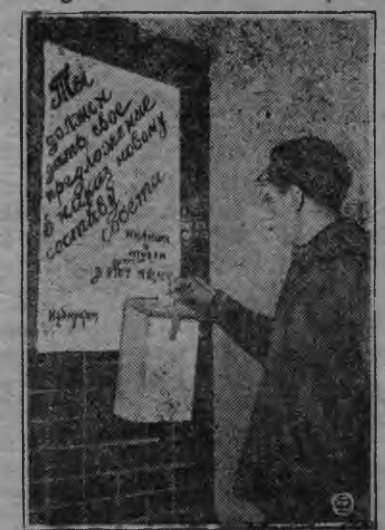 Ты
должен
дать свое
предложение
в наказ новому
составу
совета
пиши
и
в этот ящик